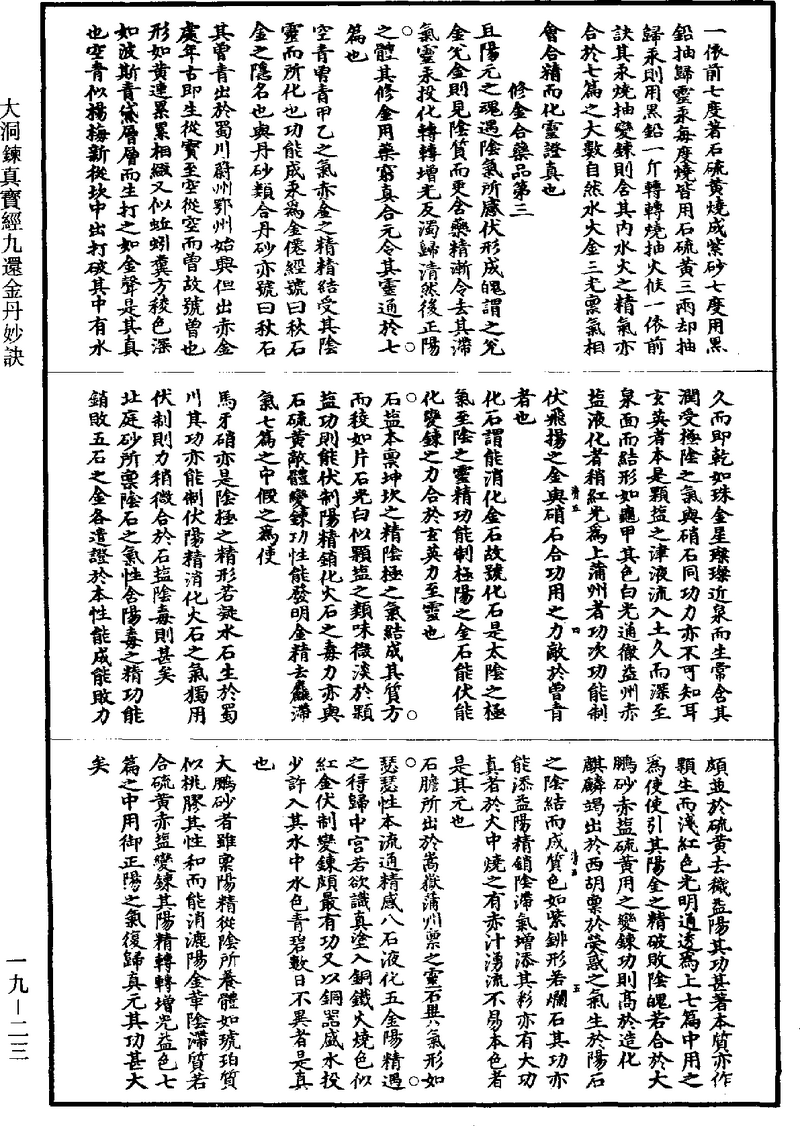 大洞鍊真寶經九還金丹妙訣
一九－二三
一依前七度著石硫黃燒成紫砂七度用黑
鉛抽歸靈汞每度燒皆用石硫黃三兩却抽
歸汞則用黑鉛一斤轉轉燒抽火候一依前
訣其汞燒抽變鍊則含其內水火之精氣亦
合於七篇之大數自然水火金三光稟氣相
會合精而化靈證真也
修金合藥品第三
且陽元之魂遇陰氣所感伏形成魄謂之兊
金兊金則見陰質而更含藥精漸令去其滯
氣靈汞投化轉轉增光反濁歸清然後正陽
之體其修金用藥窮真合元令其靈通於七
篇也
空青曽青甲乙之氣亦金之精精結受其陰
靈而所化也功能成汞為金僊經號曰秋石
金之隱名也與丹砂類合丹砂亦號曰秋石
其曽青出於蜀川蔚州鄂州始興但出赤金
處年古即生從實至空從空而曽故號曽也
形如黃連累累相綴又似蚯蚓糞方稜色深
如波斯青黛層層而生打之如金聲是其真
也空青似楊梅新從坎中出打破其中有水
久而即乾如珠金星璨璨近泉而生常含其
潤受極陰之氣與硝石同功力亦不可知耳
玄英者本是顆盐之津液流入土久而深至
泉面而結形如龜甲其色白光通徹益州赤
盐液化者稍紅光為上蒲州者功次功能制
伏飛揚之金與硝石合功用之力敵於曽青
者也
化石謂能消化金石故號化石是太陰之極
氣至陰之靈精功能制極陽之金石能伏能
化變鍊之力合於玄英力至靈也
石盐本稟坤坎之精陰極之氣結成其質方
而稜如片石光白似顆盐之類味微淡於顆
盐功則能伏制陽精銷化火石之毒力亦與
石硫黃敵體變鍊功性能發明金精去麤滯
氣七篇之中假之為使
馬牙硝亦是陰極之精形若凝水石生於蜀
川其功亦能制伏陽精消化火石之氣獨用
伏制則力稍微合於石盐陰毒則甚矣
北庭砂所稟陰石之氣性含陽毒之精功能
銷敗五石之金各遣證於本性能成能敗力
頗並於硫黃去穢益陽其功甚著本質亦作
顆生而淺紅色光明通透為上七篇中用之
為使使引其陽金之精破敗陰魄若合於大
鵬砂赤盐硫黃用之變鍊功則高於造化
麒麟竭出於西胡稟於熒惑之氣生於陽石
之陰結而成質色如紫鉚形若爛石其功亦
能添益陽精銷陰滯氣增添其彩亦有大功
真者於火中燒之有赤汁湧流不易本色者
是其元也
石膽所出於嵩嶽蒲州稟之靈石異氣形如
瑟瑟性本流通精感八石液化五金陽精遇
之得歸中宫若欲識真塗入銅鐵火燒色似
紅金伏制變鍊頗最有功又以銅器盛水投
少許入其水中水色青碧數日不異者是真
也
大鵬砂者雖稟陽精從陰所養體如琥珀質
似桃膠其性和而能消漉陽金華陰滯質若
合硫黃赤盐變鍊其陽精轉轉增光益色七
篇之中用御正陽之氣復歸真元其功甚大
矣